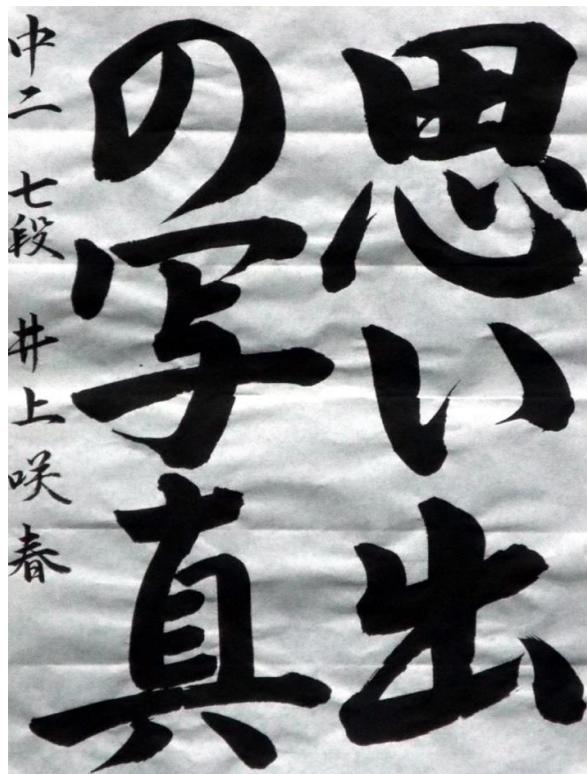 思い出
の写真
中二 七段 井上咲春